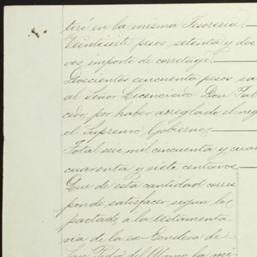 teré en la misma Tesorería.
Veintisiete pesos setenta y dos
vos importe de corretage.
Doscientos cincuenta pesos sa
al Señor Licenciado Don
cedo, por haber arreglado el neg
el Supremo Gobierno
Total seis mil cincuenta y cua
cuarenta y siete centavos
Que de esta cantidad corres
ponde satisfacer segun lo
pactado a la testamenta
ria de la ex-Condesa de
San Pedro del Alamo la mi